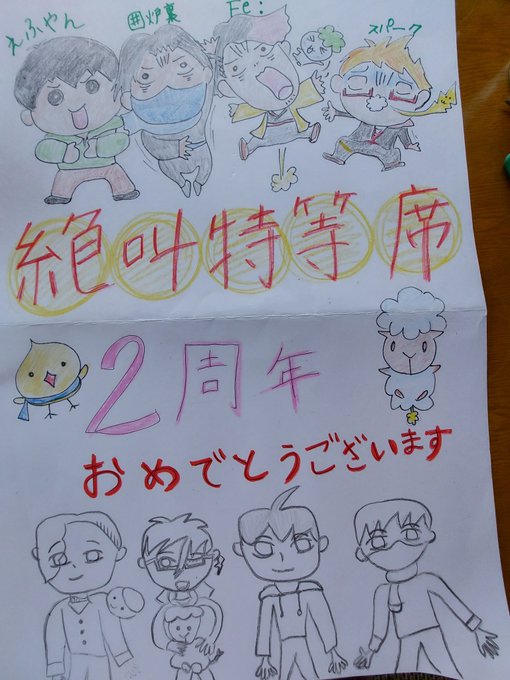 えふやん 囲炉裏 Fe: スパーク
絶叫特等席
2周年
おめでとうございます